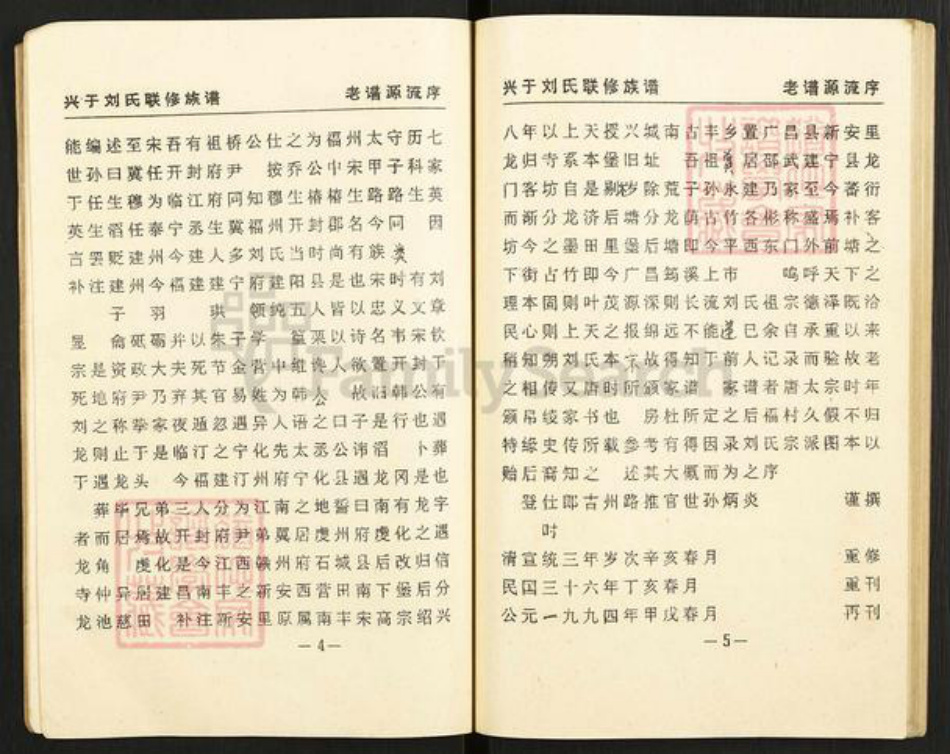 兴于刘氏联修族谱 老谱源流序
能编述至宋吾有祖桥公仕之为福州太守历七
世孙曰冀任开封府尹 按乔公中宋甲子科家
于任生穆为临江府同知穆生椿椿生路路生英
英生滔任泰宁丞生冀福州开封郡名今同 因
言罢贬建州今建人多刘氏当时尚有族类
补注建州今福建建宁府建阳县是也宋时有刘
子 羽 珙 领纯五人皆以忠义文章
显 俞砥砺并以朱子学 篁栗以诗名韦宋钦
宗是资政大夫死节金营中维谗人欲置开封于
死地府尹乃弃其官易姓为韩公 故旧韩公有
刘之称挚家夜遁忽遇异人语之口子是行也遇
龙则止于是临汀之宁化先太丞公讳滔 卜葬
于遇龙头 今福建汀州府宁化县遇龙冈是也
葬毕兄弟三人分为江南之地誓曰南有龙字
者而居焉故开封府尹弟翼居虔州府虔化之遇
龙角 虔化是今江西赣州府石城县后改归信
寺仲异居建昌南丰之新安西营田南下堡后分
龙池慈田 补注新安里原属南丰宋高宗绍兴
—4—
兴于刘氏联修族谱 老谱源流序
八年以上天授兴城南古丰乡置广昌县新安里
龙归寺系本堡旧址 吾祖 居邵武建宁县龙
门客坊自是剔 除荒子孙永建乃家至今蕃衍
而渐分龙济后塘分龙 古竹各彬称盛焉补客
坊今之墨田里堡后塘即今平西东门外前塘之
下街古竹即今广昌筠溪上市 呜呼天下之
理本固则叶茂源深则长流刘氏祖宗德泽既洽
民心则上天之报绵远不能 已余自承重以来
稍知朔刘氏本宗故得知于前人记录而验故老
之相传又唐时所颁家谱 家谱者唐太宗时年
颁吊绫家书也 房杜所定之后福村久假不归
特缘史传所载参考有得因录刘氏宗派图本以
贻后裔知之 述其大慨而为之序
登仕郎古州路推官世孙炳炎 谨撰
时
清宣统三年岁次辛亥春月 重修
民国三十六年丁亥春月 重刊
公元一九九四年甲戌春月 再刊
—5—
FamilySearch